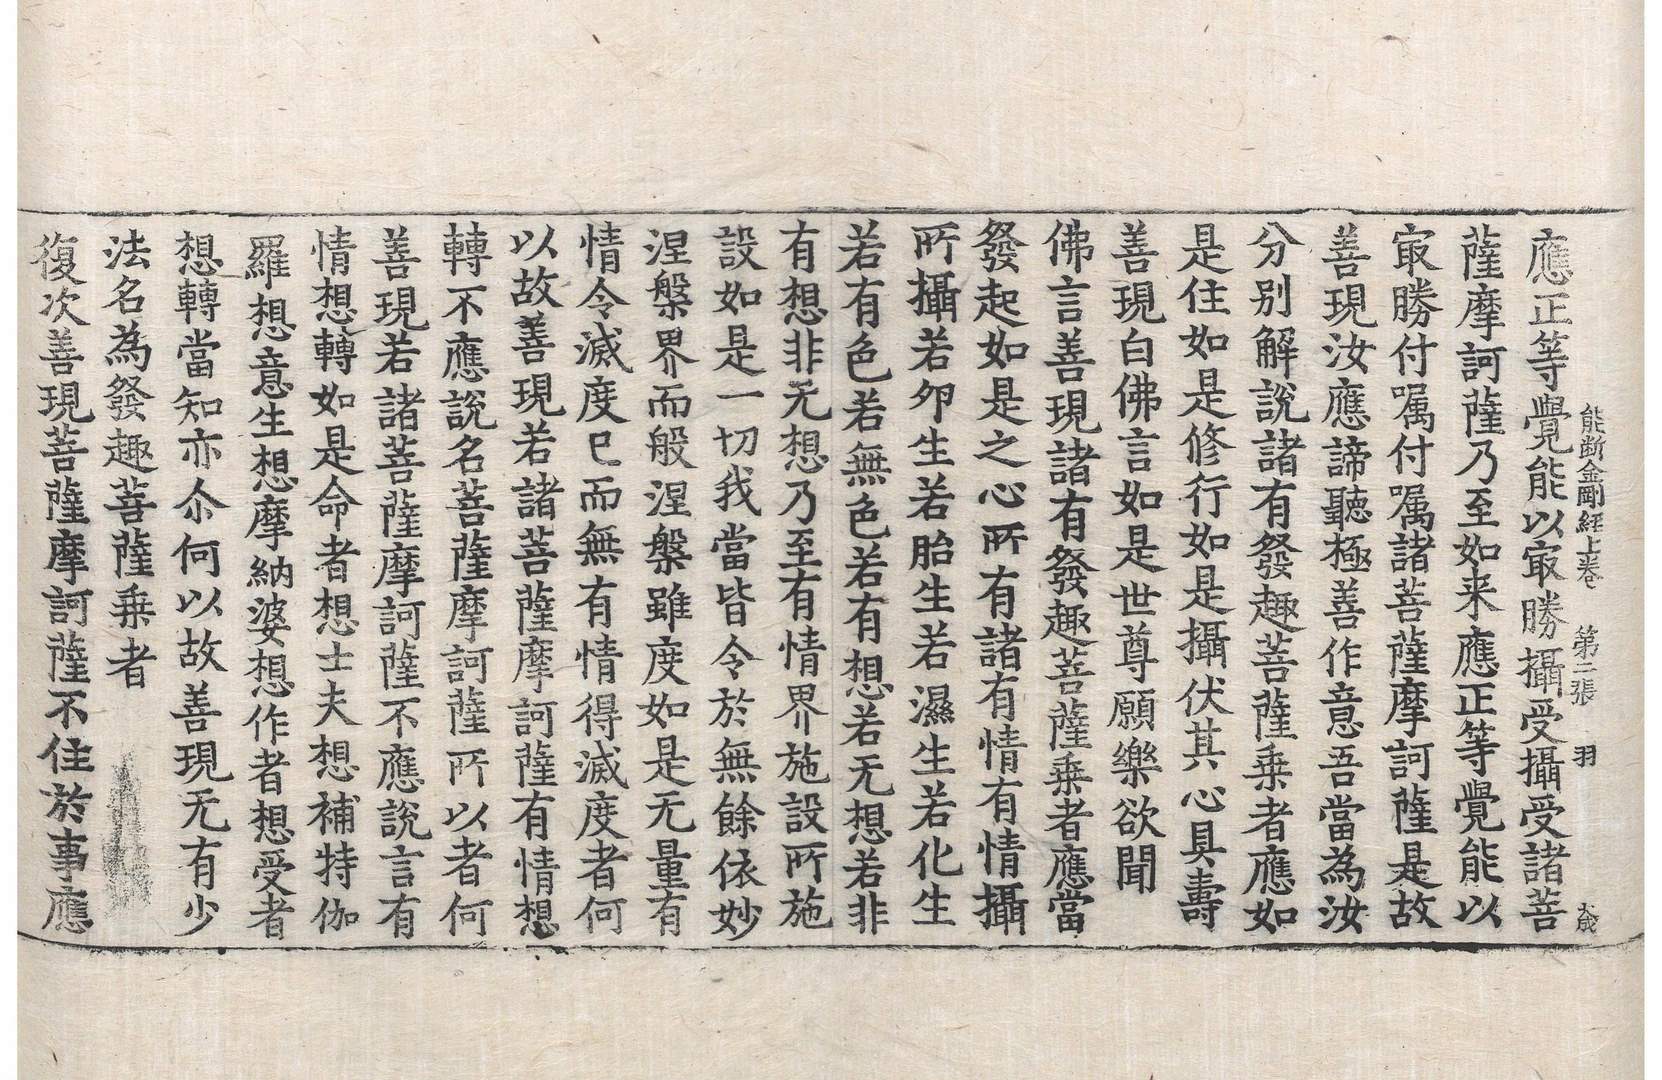 能断金剛経上卷 第二張 羽 大成
應正等覺能以㝡勝攝受攝受諸菩
薩摩訶薩乃至如来應正等覺能以
㝡勝付嘱付嘱諸菩薩摩訶薩是故
善現汝應諦聽極善作意吾當為汝
分别解說諸有發趣菩薩乗者應如
是住如是修行如是攝伏其心具壽
善現白佛言如是世尊願樂欲聞
佛言善現諸有發趣菩薩乗者應當
發起如是之心所有諸有情有情攝
所攝若卵生若胎生若濕生若化生
若有色若無色若有想若无想若非
有想非无想乃至有情界施設所施
設如是一切我當皆令於無餘依妙
涅槃界而般涅槃雖度如是无量有
情令滅度巳而無有情得滅度者何
以故善現若諸菩薩摩訶薩有情想
轉不應說名菩薩摩訶薩所以者何
善現若諸菩薩摩訶薩不應說言有
情想轉如是命者想士夫想補特伽
羅想意生想摩納婆想作者想受者
想轉當知亦尒何以故善現无有少
法名為發趣菩薩乗者
復次善現菩薩摩訶薩不住於事應